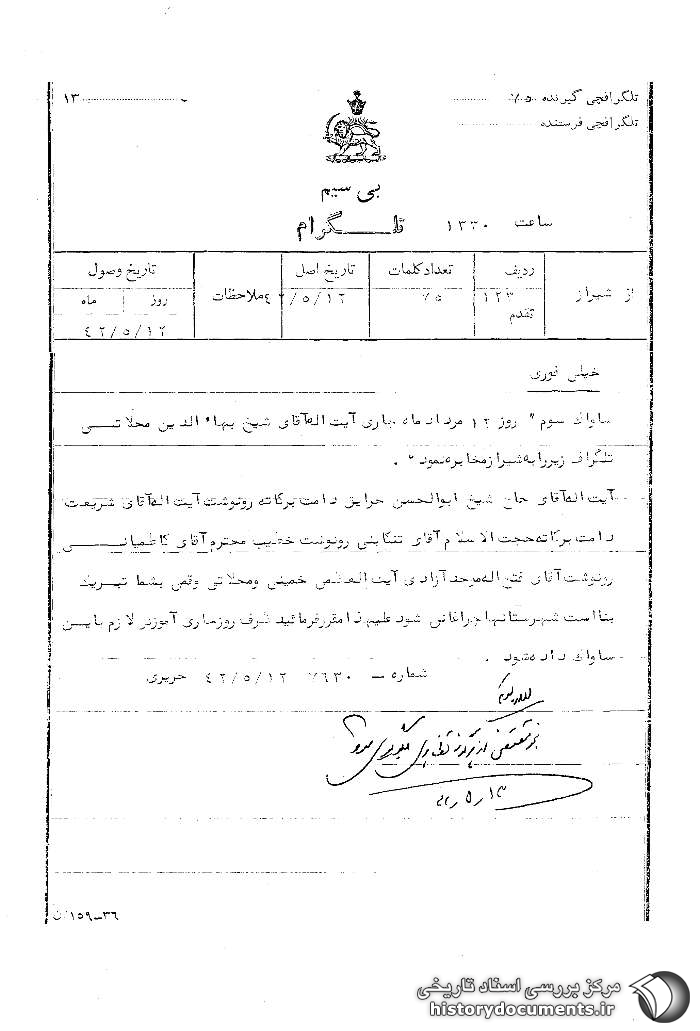 تلگرافچی گیرنده ۷۵
۱۳
تلگرافچی فرستنده
بی سیم
تلگرام
ساعت ۱۳۳۰
از شیراز
ردیف ۱۲۳ تقدم
تعداد کلمات ۷۵
تاریخ اصل ۴۲/۵/۱۲
ملاحظات
تاریخ وصول
روز ماه
۴۲/۵/۱۲
خیلی فوری
ساواک سوم " روز ۱۲ مرداد ماه جاری آیت اله آقای شیخ بهاء الدین محلاتی
تلگراف زیر را به شیراز مخابره نمود " .
آیت اله آقای حاج شیخ ابوالحسن حدایق دامت برکاته رونوشت آیت اله آقای شریعت
دامت برکاته حجت الاسلام آقای تنکابنی رونوشت خطیب محترم آقای کاظمینی
رونوشت آقای فتح اله موحد آزادی آیت العظمی خمینی و محلاتی و قمی تبریک
بنا است شهرستانها چراغانی شود علیهذا مقرر فرمائید ظرف روز جاری آموزش لازم باین
ساواک داده شود .
شماره - ۷۶۳۰ ۴۲/۵/۱۲ حریری
۱۳ر۵ر
۳۶-۱۵۹/ن
مرکز بررسی اسناد تاریخی
historydocuments.ir